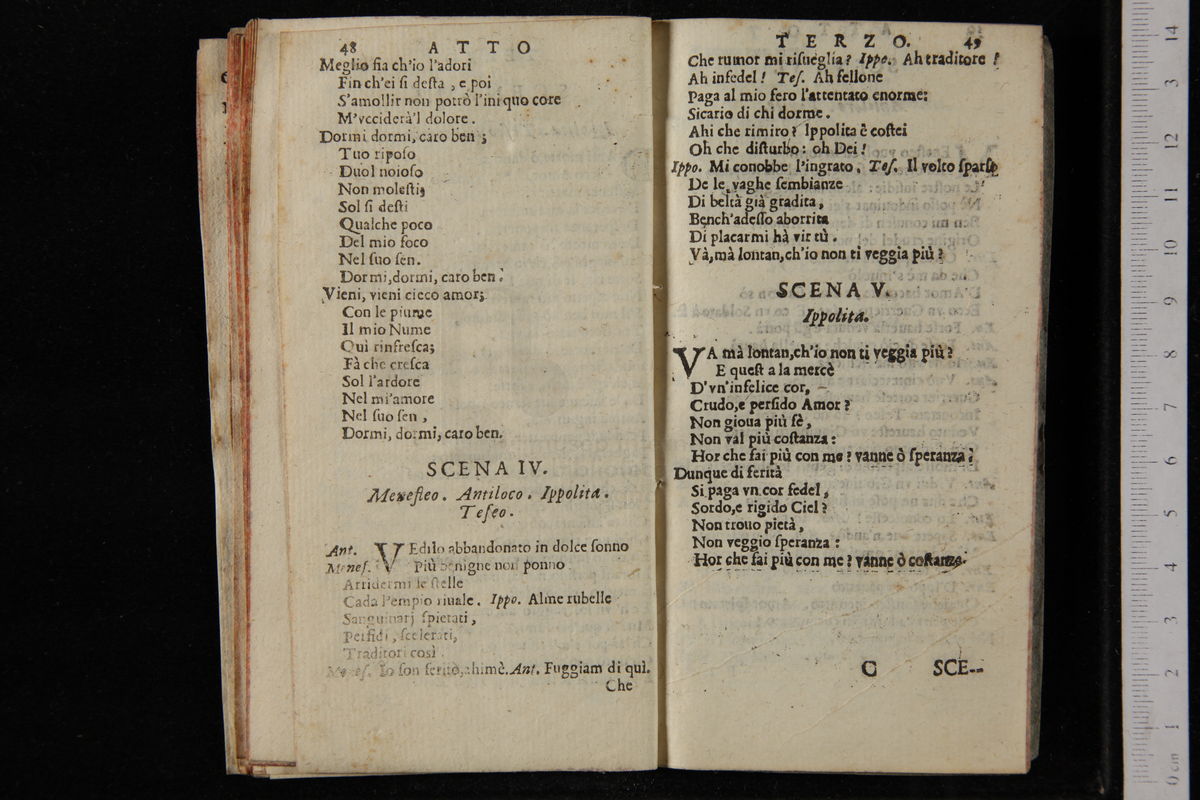 48 ATTO
Meglio fia ch'io l'adori
Fin ch'ei ſi deſta, e poi
S'amollir non potrò l'iniquo core
M'vcciderà'l dolore.
Dormi dormi, caro ben;
Tuo ripoſo
Duol noioſo
Non moleſti,
Sol ſi deſti
Qualche poco
Del mio foco
Nel ſuo ſen.
Dormi, dormi, caro ben.
Vieni, vieni cieco amor;
Con le piume
Il mio Nume
Quì rinfreſca;
Fà che creſca
Sol l'ardore
Nel mi'amore
Nel ſuo ſen,
Dormi, dormi, caro ben.
SCENA IV.
Meneſteo. Antiloco. Ippolita.
Teſeo.
Ant. VEdilo abbandonato in dolce ſonno
Meneſ. Più benigne non ponno
Arridermi le ſtelle
Cada l'empio riuale. Ippo. Alme rubelle
Sanguinarj ſpietati,
Perfidi, ſcelerati,
Traditori così.
Meneſ. Io ſon ferito, ahimè. Ant. Fuggiam di quì.
Che
TERZO. 49
Che rumor mi riſueglia? Ippo. Ah traditore!
Ah infedel! Teſ. Ah fellone
Paga al mio fero l'attentato enorme:
Sicario di chi dorme.
Ahi che rimiro? Ippolita è coſtei
Oh che diſturbo: oh Dei!
Ippo. Mi conobbe l'ingrato. Teſ. Il volto ſparſo
De le vaghe ſembianze
Di beltà già gradita,
Bench'adeſſo aborrita
Di placarmi hà virtù.
Và, mà lontan, ch'io non ti veggia più?
SCENA V.
Ippolita.
VA mà lontan, ch'io non ti veggia più?
E queſt a la mercè
D'vn'infelice cor,
Crudo, e perfido Amor?
Non gioua più fè,
Non val più coſtanza:
Hor che fai più con me? vanne ò ſperanza?
Dunque di ferità
Si paga vn cor fedel,
Sordo, e rigido Ciel?
Non trouo pietà,
Non veggio ſperanza:
Hor che fai più con me? vanne ò coſtanza.
C SCE--
14
13
12
11
10
9
8
7
6
5
4
3
2
1
0 cm